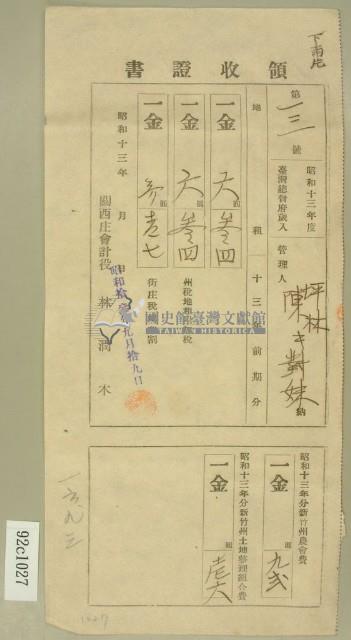 下南片
領收證書
第一三一號
昭和十三年度
臺灣總督府歲入
管理人
坪林
陳士對妹納
地租 十三年前期分
一金 六圓叁四
一金 六圓叁四
州稅地租附加稅
一金 叁圓壱七
街庄稅地租割
昭和十三年 月 日
昭和拾叁年九月拾九日
關西庄會計役 林潤木
國史館臺灣文獻館
TAIWAN HISTORICA
昭和十三年分新竹州農會費
一金 圓九貳
昭和十三年分新竹州土地整理組合費
一金 圓壱六
一六九三
92c1027
1027